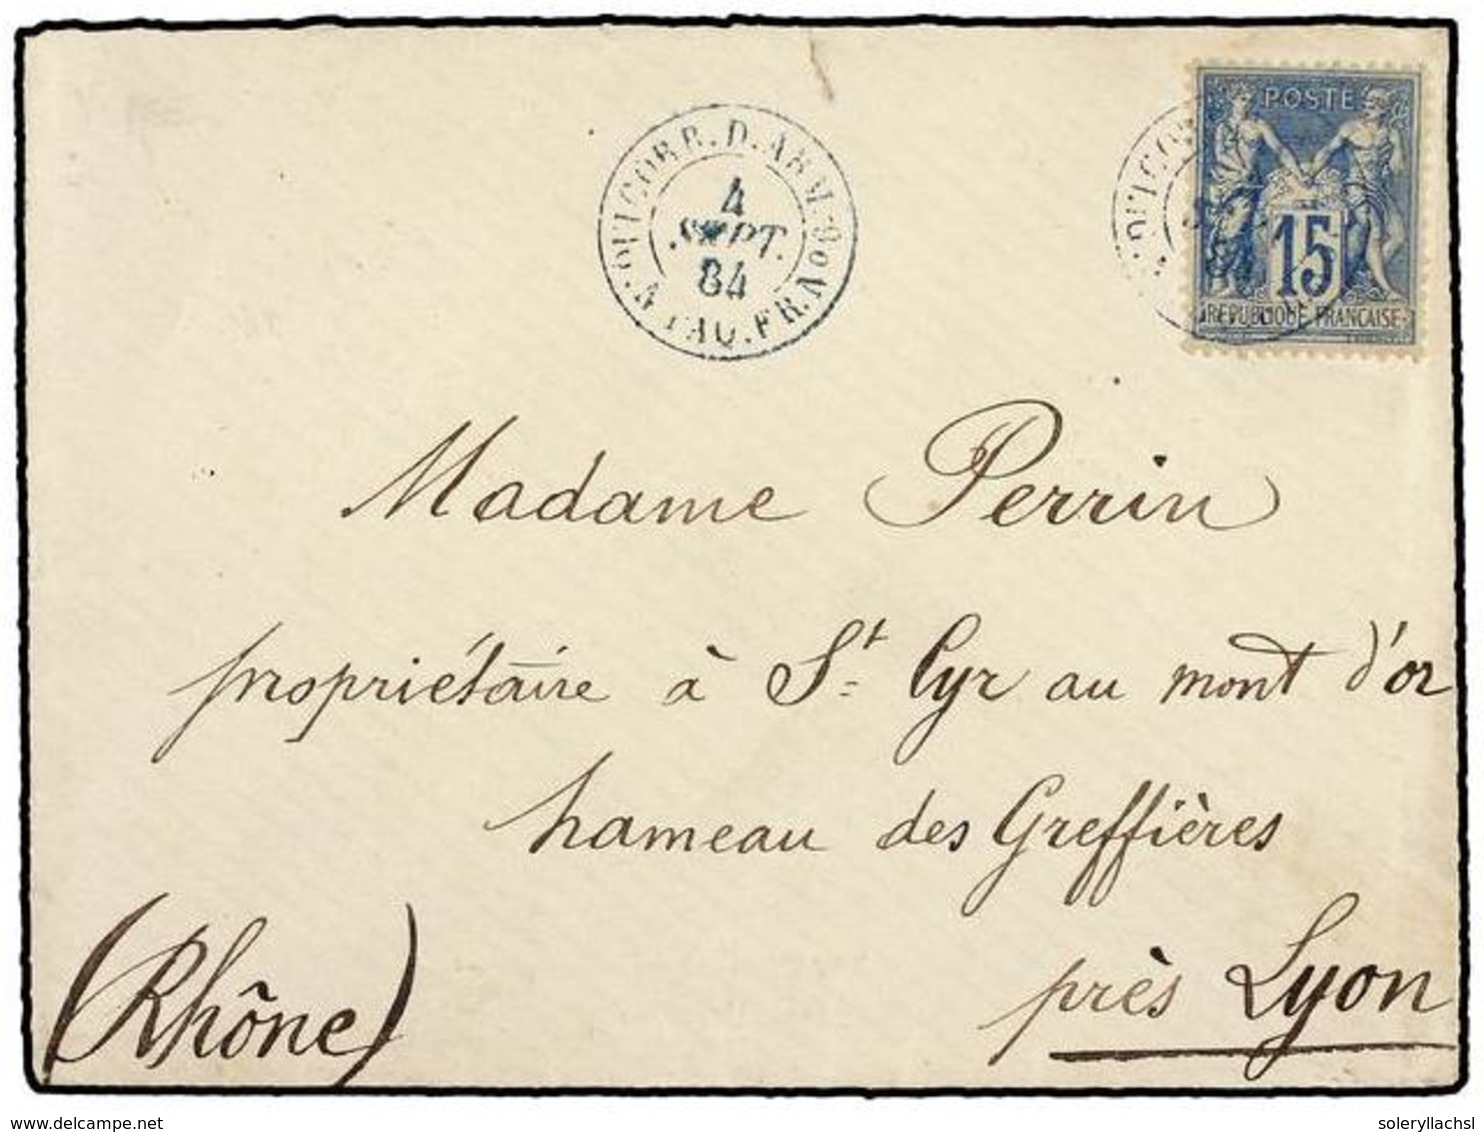 CORR. D. ARM.
4
SEPT.
84
PAQ. FR. No 9
POSTE
15
REPUBLIQUE FRANÇAISE
Madame Perrin
propriétaire à St Cyr au mont d'or
hameau des Greffières
près Lyon
(Rhône)
www.delcampe.net
soleryllachsl